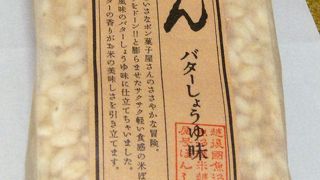 ん
バターしょうゆ味
越後国魚沼
いさなポン菓子屋さんのささやかな冒険。
をドーン!!と膨らませたサクサク軽い食感の米ぽ
風味のバターしょうゆ味に仕立てちゃいました。
ターの香りがお米の美味しさを引き立てます。